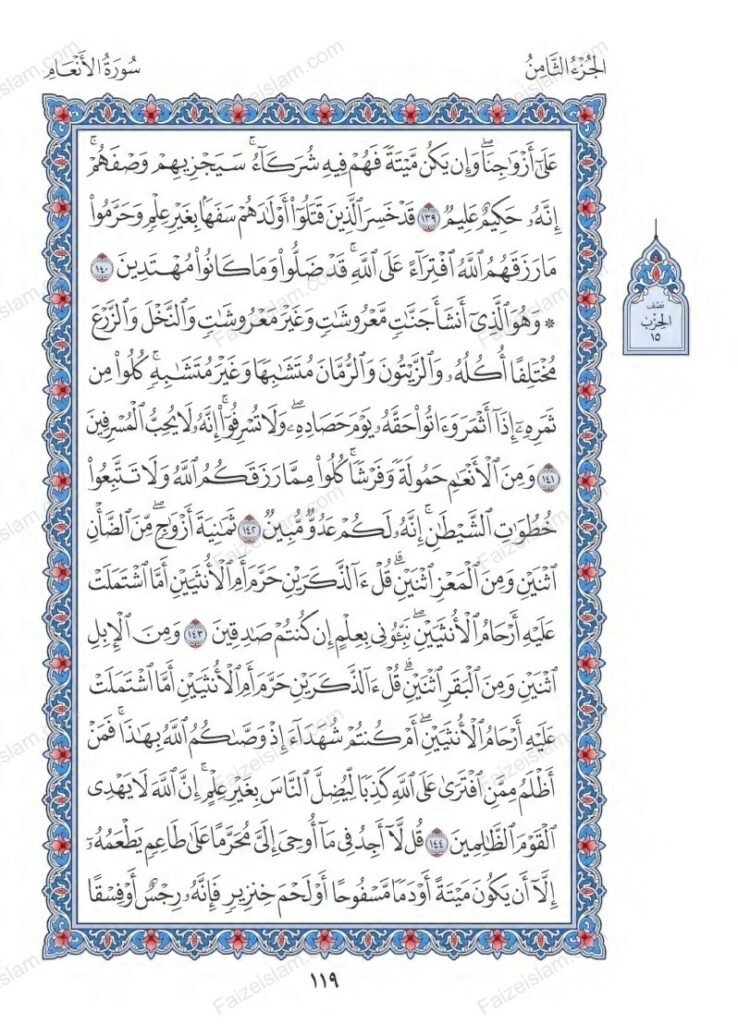 الجُزْءُ الثَّامِنُ
سُورَةُ الأَنْعَامِ
عَلَىٰٓ أَزْوَٰجِنَاۖ وَإِن يَكُن مَّيْتَةٗ فَهُمْ فِيهِ شُرَكَآءُۚ سَيَجْزِيهِمْ وَصْفَهُمْۚ
إِنَّهُۥ حَكِيمٌ عَلِيمٞ ١٣٩ قَدْ خَسِرَ ٱلَّذِينَ قَتَلُوٓاْ أَوْلَٰدَهُمْ سَفَهَۢا بِغَيْرِ عِلْمٖ وَحَرَّمُواْ
مَا رَزَقَهُمُ ٱللَّهُ ٱفْتِرَآءً عَلَى ٱللَّهِۚ قَدْ ضَلُّواْ وَمَا كَانُواْ مُهْتَدِينَ ١٤٠
* وَهُوَ ٱلَّذِيٓ أَنشَأَ جَنَّٰتٖ مَّعْرُوشَٰتٖ وَغَيْرَ مَعْرُوشَٰتٖ وَٱلنَّخْلَ وَٱلزَّرْعَ
مُخْتَلِفًا أُكُلُهُۥ وَٱلزَّيْتُونَ وَٱلرُّمَّانَ مُتَشَٰبِهٗا وَغَيْرَ مُتَشَٰبِهٖۚ كُلُواْ مِن
ثَمَرِهِۦٓ إِذَآ أَثْمَرَ وَءَاتُواْ حَقَّهُۥ يَوْمَ حَصَادِهِۦۖ وَلَا تُسْرِفُوٓاْۚ إِنَّهُۥ لَا يُحِبُّ ٱلْمُسْرِفِينَ
١٤١ وَمِنَ ٱلْأَنْعَٰمِ حَمُولَةٗ وَفَرْشٗاۚ كُلُواْ مِمَّا رَزَقَكُمُ ٱللَّهُ وَلَا تَتَّبِعُواْ
خُطُوَٰتِ ٱلشَّيْطَٰنِۚ إِنَّهُۥ لَكُمْ عَدُوّٞ مُّبِينٞ ١٤٢ ثَمَٰنِيَةَ أَزْوَٰجٖۖ مِّنَ ٱلضَّأْنِ
ٱثْنَيْنِ وَمِنَ ٱلْمَعْزِ ٱثْنَيْنِۗ قُلْ ءَآلذَّكَرَيْنِ حَرَّمَ أَمِ ٱلْأُنثَيَيْنِ أَمَّا ٱشْتَمَلَتْ
عَلَيْهِ أَرْحَامُ ٱلْأُنثَيَيْنِۖ نَبِّـُٔونِي بِعِلْمٍ إِن كُنتُمْ صَٰدِقِينَ ١٤٣ وَمِنَ ٱلْإِبِلِ
ٱثْنَيْنِ وَمِنَ ٱلْبَقَرِ ٱثْنَيْنِۗ قُلْ ءَآلذَّكَرَيْنِ حَرَّمَ أَمِ ٱلْأُنثَيَيْنِ أَمَّا ٱشْتَمَلَتْ
عَلَيْهِ أَرْحَامُ ٱلْأُنثَيَيْنِۖ أَمْ كُنتُمْ شُهَدَآءَ إِذْ وَصَّىٰكُمُ ٱللَّهُ بِهَٰذَاۚ فَمَنْ
أَظْلَمُ مِمَّنِ ٱفْتَرَىٰ عَلَى ٱللَّهِ كَذِبٗا لِّيُضِلَّ ٱلنَّاسَ بِغَيْرِ عِلْمٍۚ إِنَّ ٱللَّهَ لَا يَهْدِي
ٱلْقَوْمَ ٱلظَّٰلِمِينَ ١٤٤ قُل لَّآ أَجِدُ فِي مَآ أُوحِيَ إِلَيَّ مُحَرَّمًا عَلَىٰ طَاعِمٖ يَطْعَمُهُۥٓ
إِلَّآ أَن يَكُونَ مَيْتَةً أَوْ دَمٗا مَّسْفُوحًا أَوْ لَحْمَ خِنزِيرٖ فَإِنَّهُۥ رِجْسٌ أَوْ فِسْقًا
نصف
الحزب
١٥
١١٩
Faizeislam.com